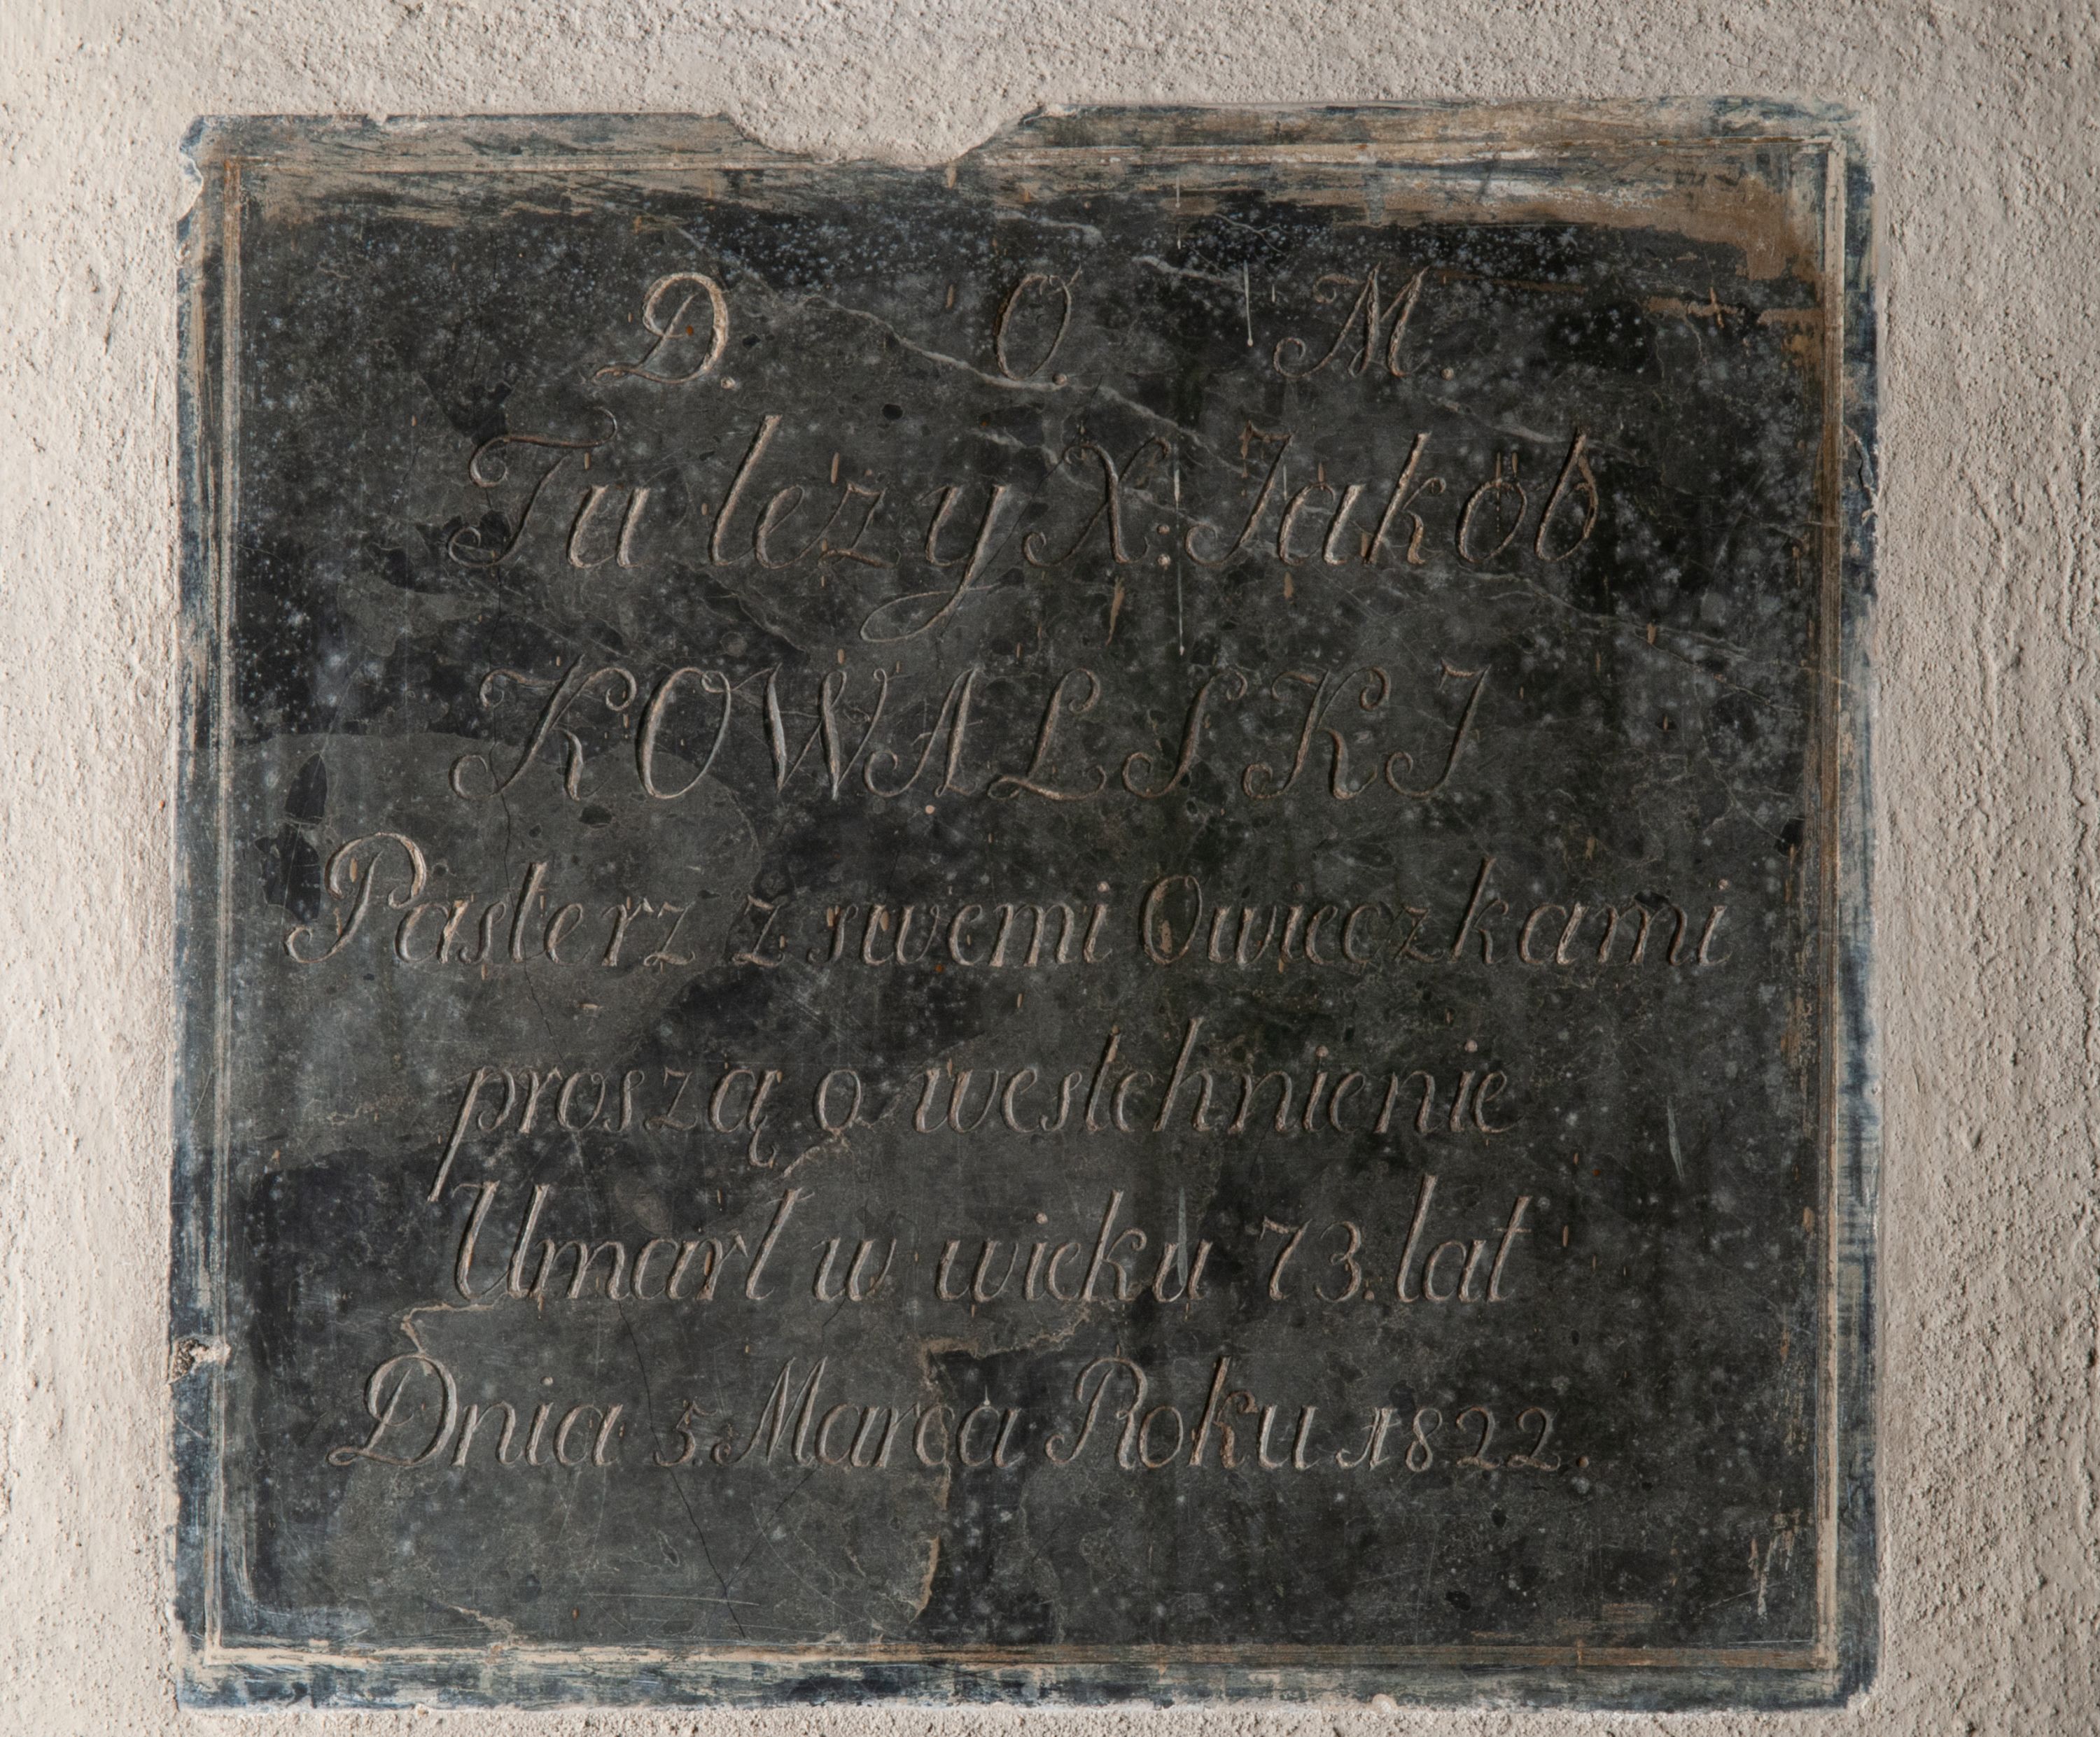 D. O. M.
Tu leży X: Jakób
KOWALSKI
Pasterz z swemi Owieczkami
proszą o westchnienie
Umarł w wieku 73. lat
Dnia 5. Marca Roku 1822.